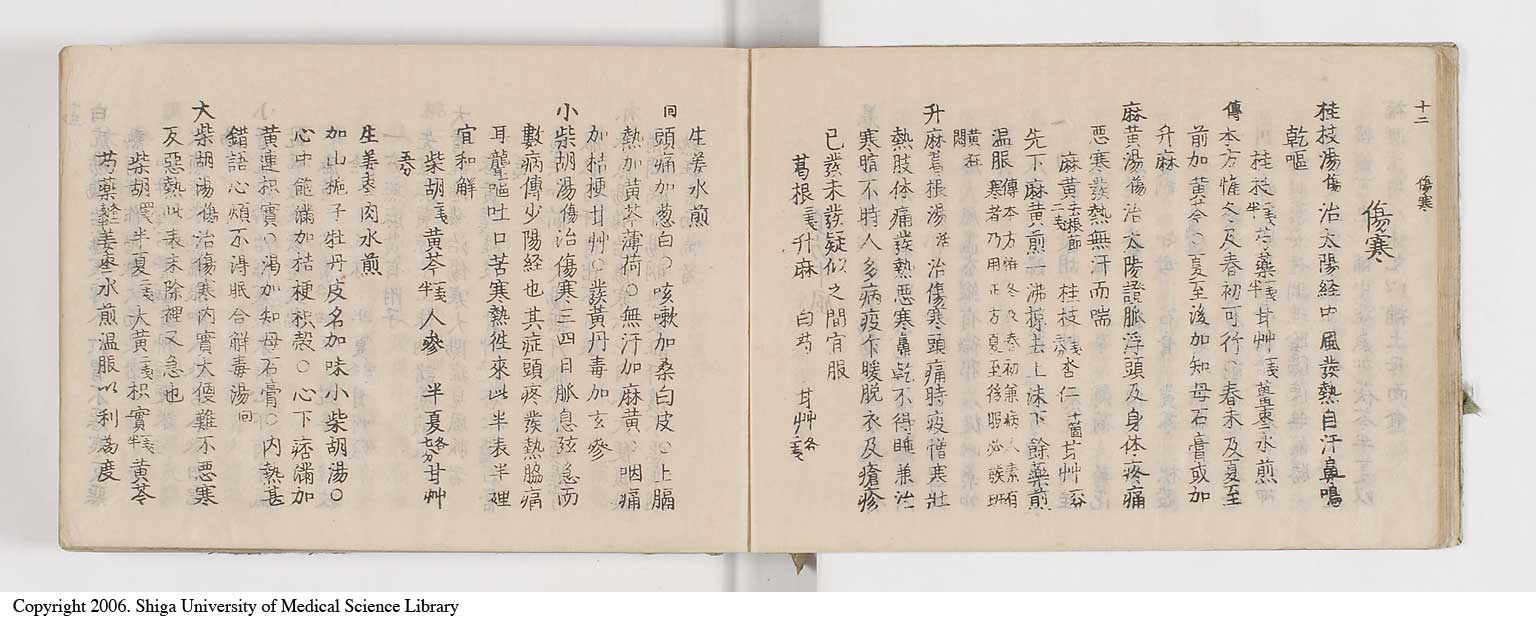 十二 傷寒
傷寒
桂枝湯傷治太陽経中風發熱自汗鼻鳴
乾嘔
桂枝一戔半芍藥一戔半甘艸一戔薑棗水煎
傳本方惟冬及春初可行節春末及夏至
前加黄芩○夏至後加知母石膏或加
升麻
麻黄湯傷治太陽證脈浮頭及身体疼痛
悪寒發熱無汗而喘
麻黄去根節二戔桂枝杏仁十箇甘艸
先下麻黄煎一沸掠去上沫下餘藥煎
温服傳本方惟冬及春初兼病人素有寒者乃用正方夏至後服必發斑黄狂悶
升麻葛根湯 治傷寒頭痛時疫憎寒壯
熱肢体痛發熱悪寒鼻乾不得睡兼治
寒暄不時人多病疫乍暖脱衣及瘡疹
已發未發疑似之間宜服
葛根 升麻 白芍 甘艸各
生姜水煎
同頭痛加葱白○咳嗽加桑白皮○上膈
熱加黄芩薄荷○無汗加麻黄○咽痛
加桔梗甘艸○發黄丹毒加玄參
小柴胡湯傷治傷寒三四日脈息弦急而
數病傳少陽経也其症頭疼發熱脇痛
耳聾嘔吐口苦寒熱徃來此半表半裡
宜和解
柴胡二戔黄芩一戔半人參 半夏各七分甘艸
五分
生姜棗肉水煎
加山梔子牡丹皮名加味小柴胡湯○
心中飽滿加桔梗枳殻○心下痞滿加
黄連枳實○渇加知母石膏○内熱甚
錯語心煩不得眠合解毒湯同
大柴胡湯傷治傷寒内實大便難不悪寒
反悪熱此表未除裡又急也
柴胡二戔半夏一戔大黄二戔枳實一戔半黄芩
芍藥姜棗水煎温服以利為度